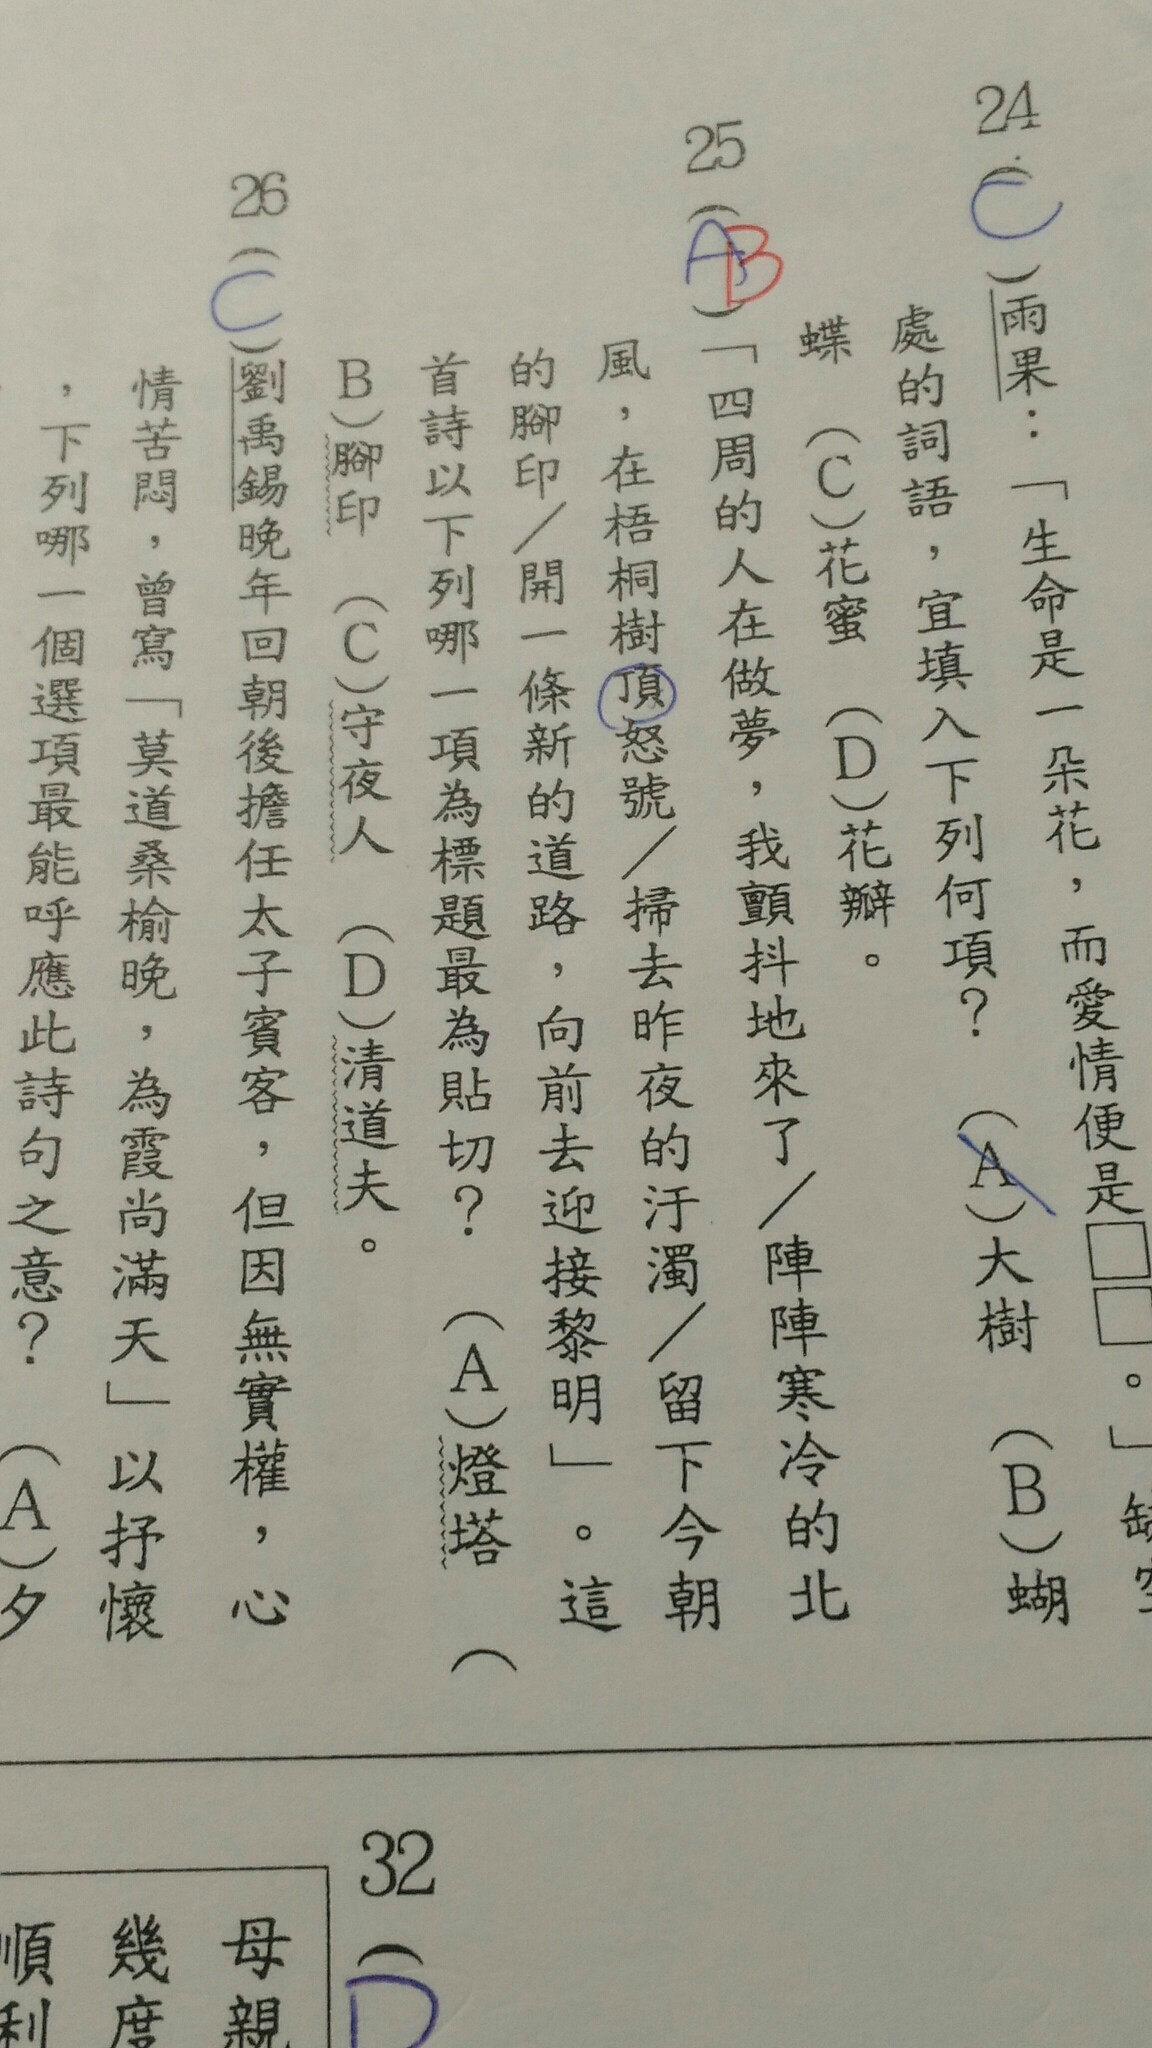 24(C)雨果：「生命是一朵花，而愛情便是□□。」缺空
處的詞語，宜填入下列何項？ (A)大樹 (B)蝴
蝶 (C)花蜜 (D)花瓣。
25(AB)「四周的人在做夢，我顫抖地來了／陣陣寒冷的北
風，在梧桐樹頂怒號／掃去昨夜的汙濁／留下今朝
的腳印／開一條新的道路，向前去迎接黎明」。這
首詩以下列哪一項為標題最為貼切？ (A)燈塔 (
B)腳印 (C)守夜人 (D)清道夫。
26(C)劉禹錫晚年回朝後擔任太子賓客，但因無實權，心
情苦悶，曾寫「莫道桑榆晚，為霞尚滿天」以抒懷
，下列哪一個選項最能呼應此詩句之意？ (A)夕
32(D
母親
幾度
順利